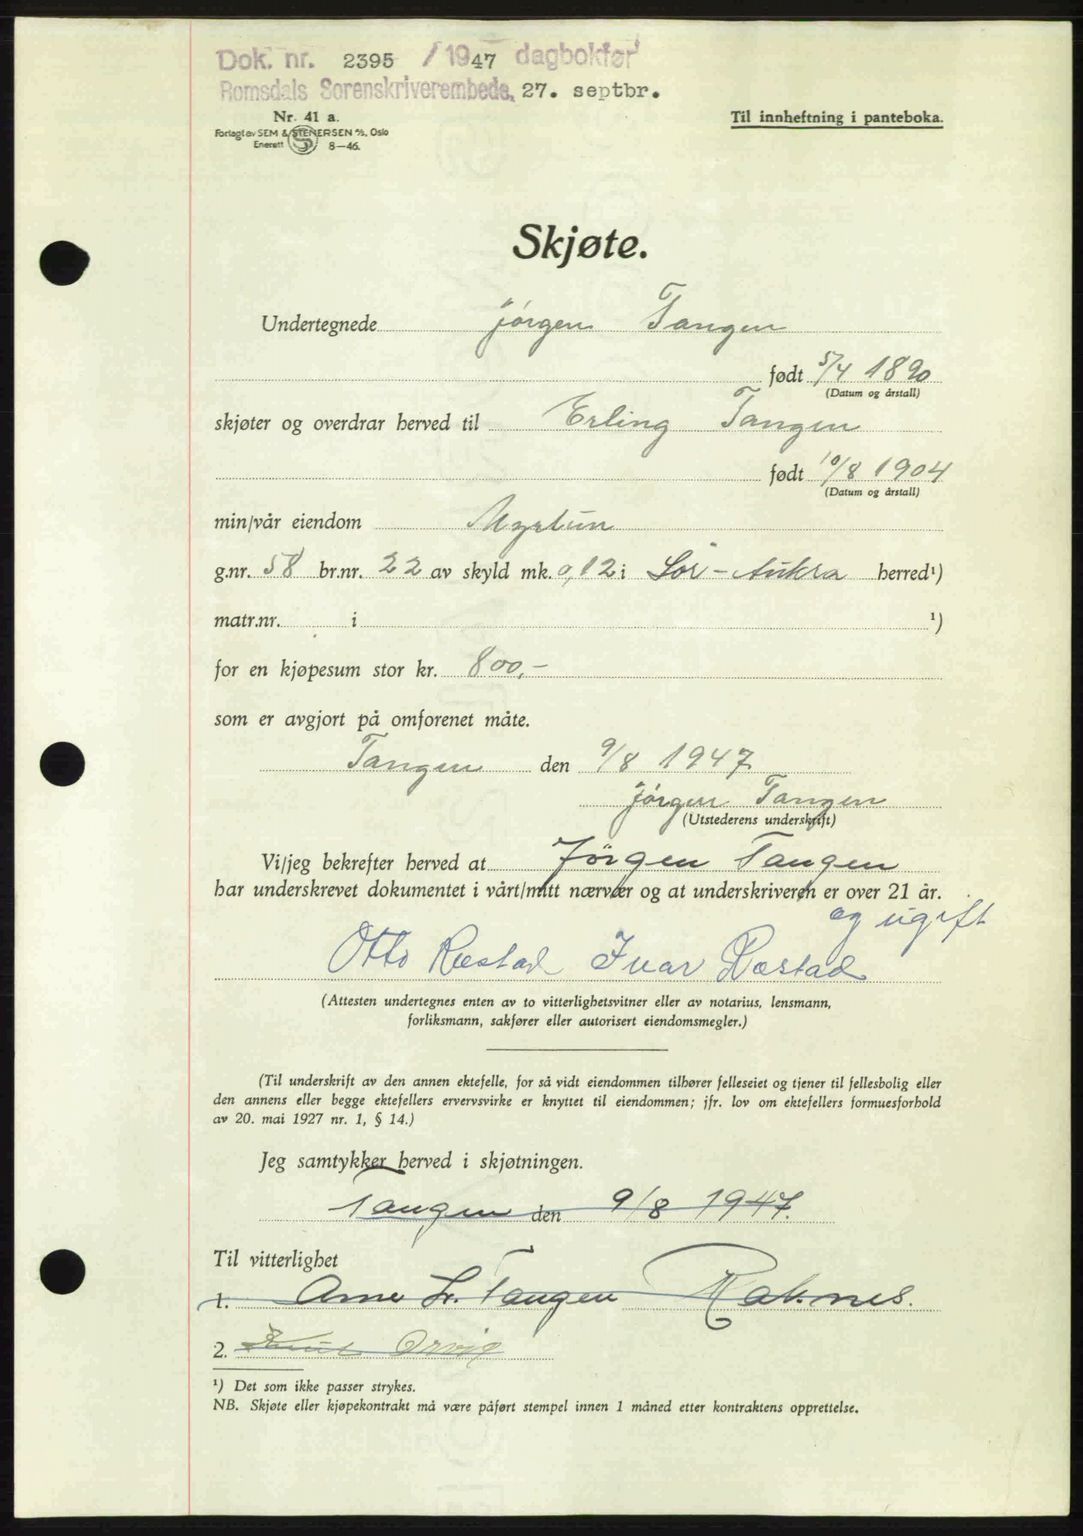 Dok. nr. 2395 / 1947 dagbokført
Romsdals Sorenskriverembede, 27. septbr.
Nr. 41 a.
Forlagt av SEM & STENERSEN A/S, Oslo
Enerett 8-46.
Til innheftning i panteboka.
Skjøte.
Undertegnede Jörgen Tangen
født 5/4 1890
(Datum og årstall)
skjøter og overdrar herved til Erling Tangen
født 10/8 1904
(Datum og årstall)
min/vår eiendom Myrtun
g.nr. 58 br.nr. 22 av skyld mk. 0,12 i Sör-Aukra herred¹)
matr.nr. i ¹)
for en kjøpesum stor kr. 800,-
som er avgjort på omforenet måte.
Tangen den 9/8 1947
Jörgen Tangen
(Utstederens underskrift)
Vi/jeg bekrefter herved at Jörgen Tangen
har underskrevet dokumentet i vårt/mitt nærvær og at underskriveren er over 21 år.
og ugift
Otto Ræstad Ivar Ræstad
(Attesten undertegnes enten av to vitterlighetsvitner eller av notarius, lensmann,
forliksmann, sakfører eller autorisert eiendomsmegler.)
(Til underskrift av den annen ektefelle, for så vidt eiendommen tilhører felleseiet og tjener til fellesbolig eller
den annens eller begge ektefellers ervervsvirke er knyttet til eiendommen; jfr. lov om ektefellers formuesforhold
av 20. mai 1927 nr. 1, § 14.)
Jeg samtykker herved i skjøtningen.
Tangen den 9/8 1947.
Til vitterlighet
1. Arne Tangen Raknes.
2. Knut
¹) Det som ikke passer strykes.
NB. Skjøte eller kjøpekontrakt må være påført stempel innen 1 måned etter kontraktens opprettelse.